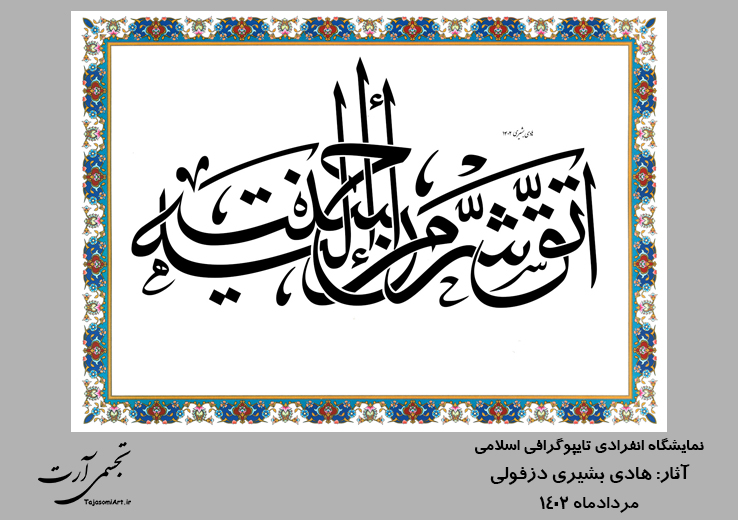 اتق شر من أحسنت إليه
هادی بشیری ۱۴۰۲
نمایشگاه انفرادی تایپوگرافی اسلامی
آثار: هادی بشیری دزفولی
مردادماه ۱۴۰۲
تجسمی آرت
TajasomiArt.ir